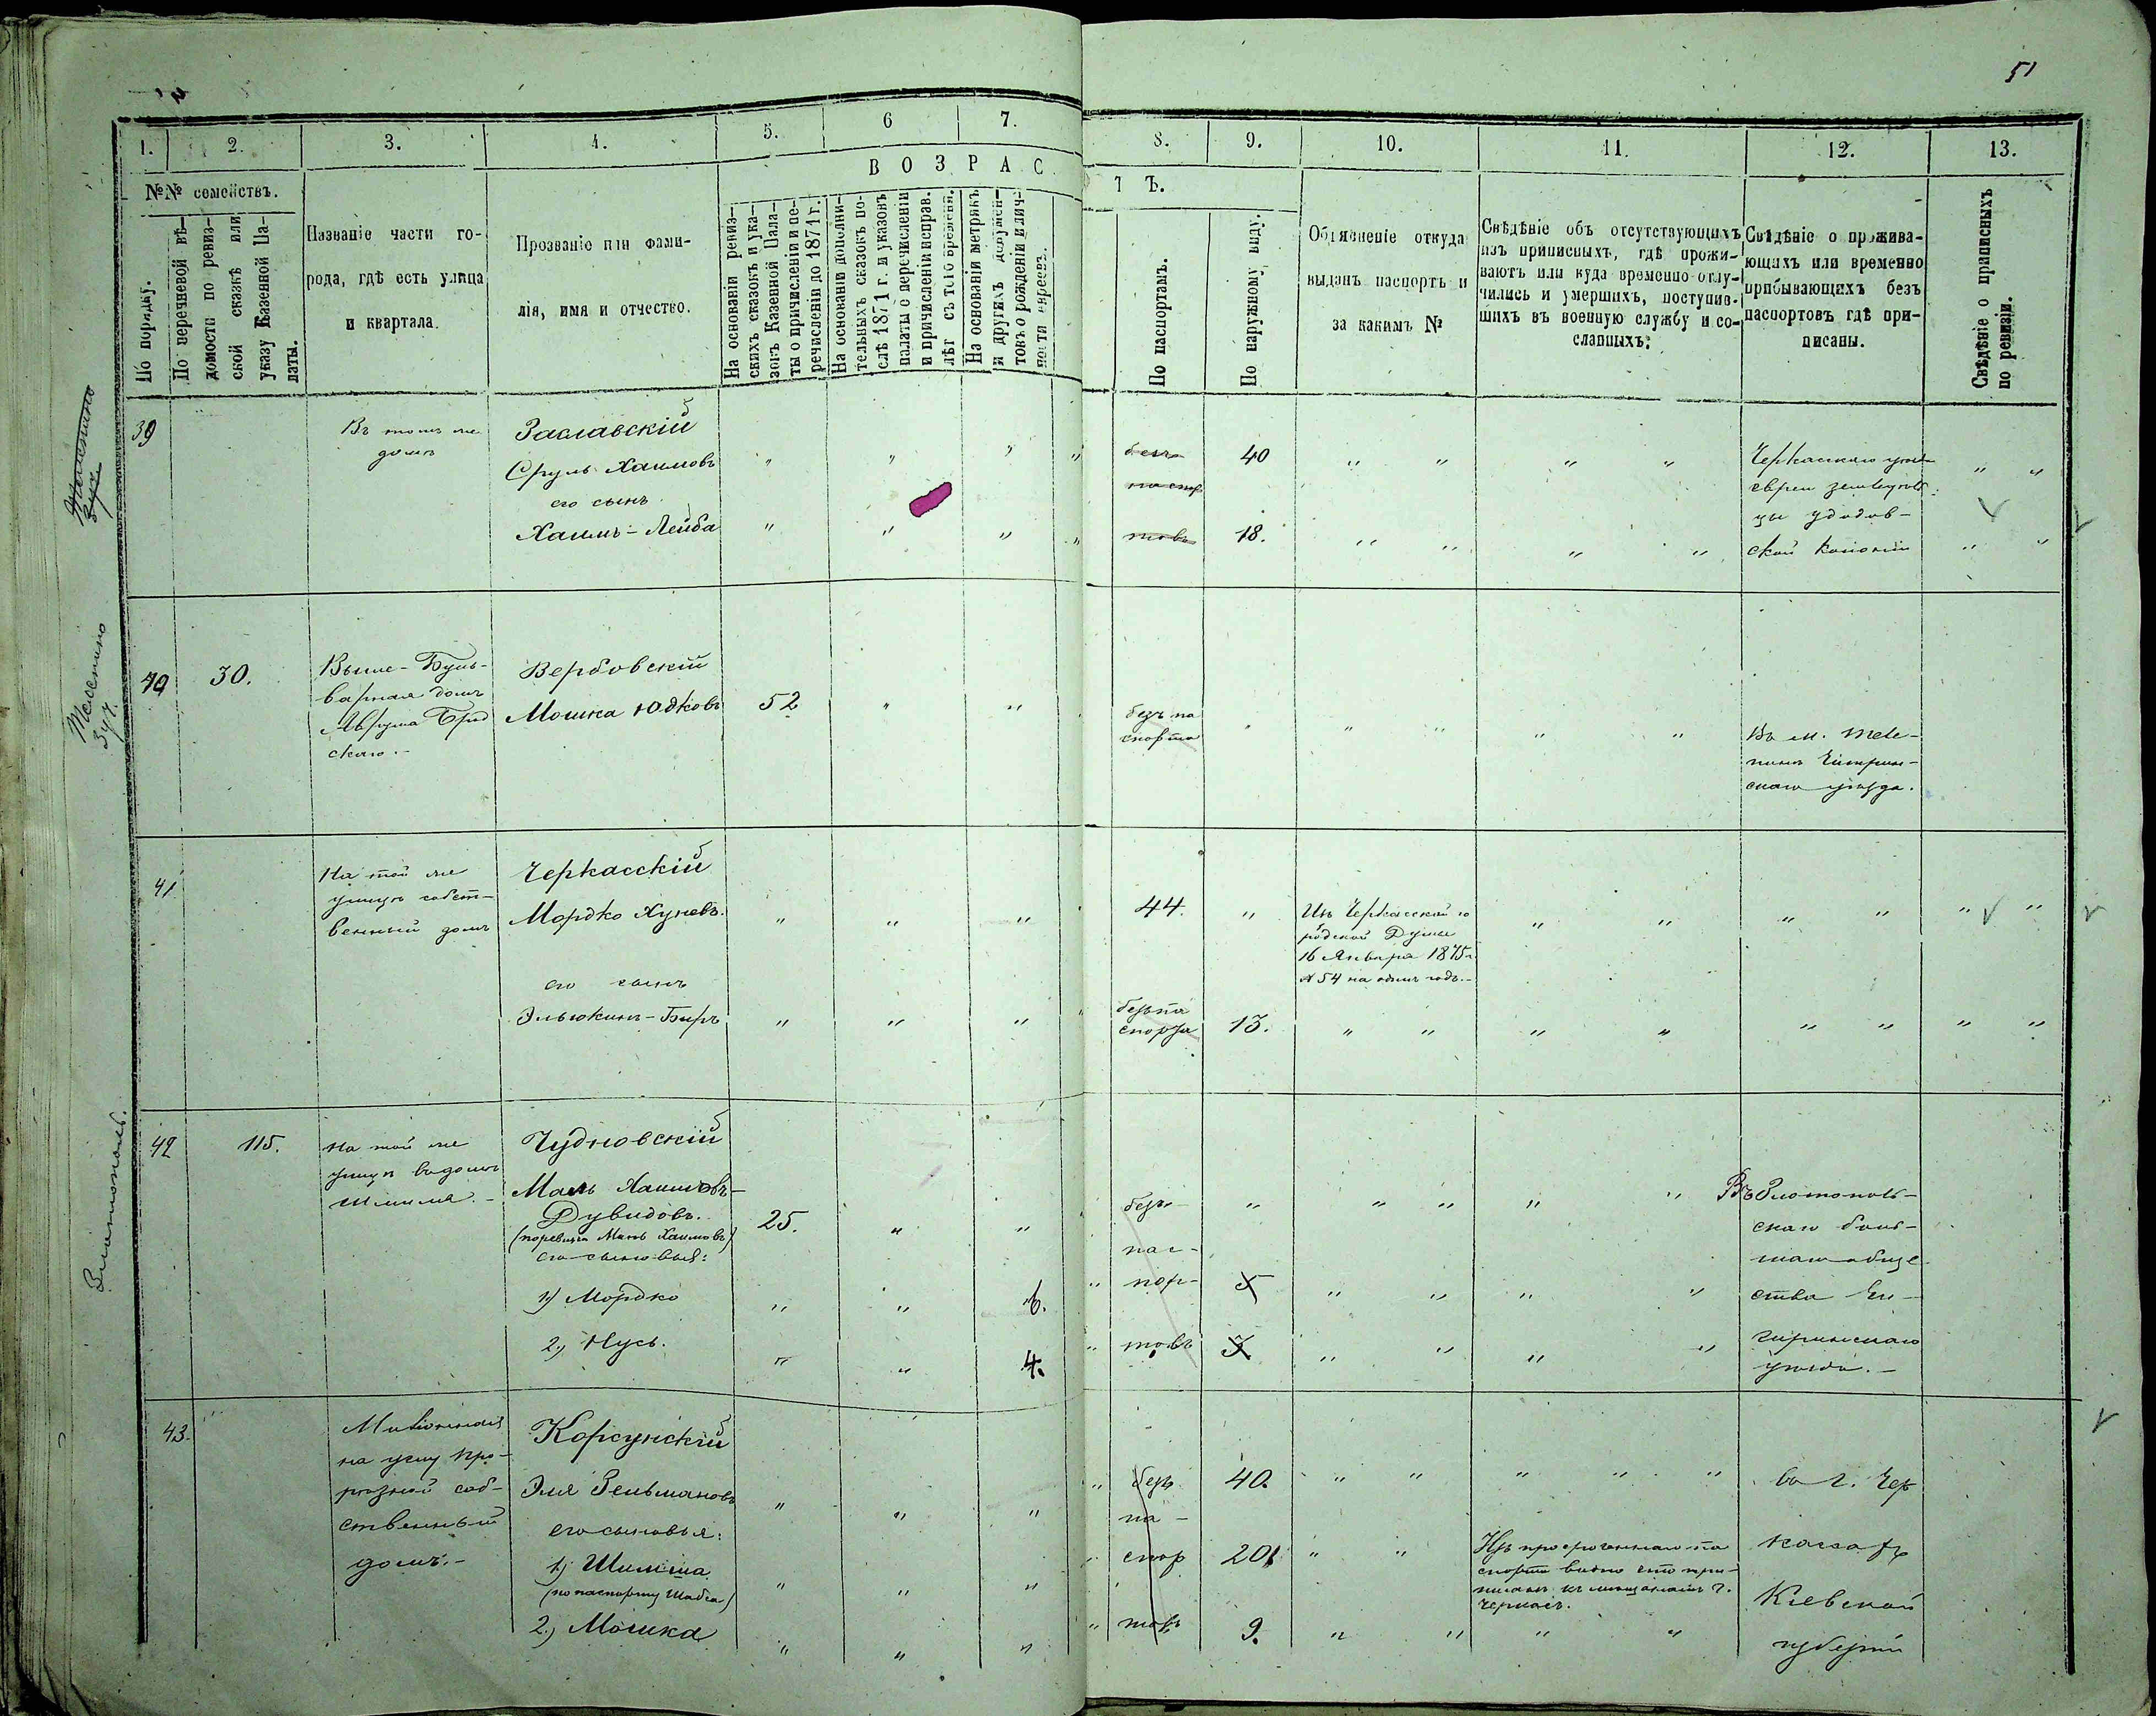 51
1. 2. 3. 4. 5. 6 7. 8. 9. 10. 11. 12. 13.
№№ семействъ.
По порядку.
По перечневой вѣ-
домости по ревиз-
ской сказкѣ или
указу Казенной Па-
латы.
Названіе части го-
рода, гдѣ есть улица
и квартала.
Прозваніе или фами-
лія, имя и отчество.
ВОЗРАС
ТЪ.
На основаніи ревиз-
скихъ сказокъ и ука-
зовъ Казенной Пала-
ты о причисленіи и пе-
речисленіи до 1871 г.
На основаніи дополни-
тельныхъ сказокъ по-
слѣ 1871 г. и указовъ
палаты о перечисленіи
и причисленіи исправ.
лѣт съ того времени.
На основаніи метрикъ
и другихъ докумен-
товъ о рожденіи и лич-
ности евреевъ.
По паспортамъ.
По наружному виду.
Объясненіе откуда
выданъ паспортъ и
за какимъ №
Свѣдѣніе объ отсутствующихъ
изъ приписныхъ, гдѣ прожи-
ваютъ или куда временно отлу-
чились и умершихъ, поступив-
шихъ въ военную службу и со-
сланныхъ.
Свѣдѣніе о прожива-
ющихъ или временно
прибывающихъ безъ
паспортовъ гдѣ при-
писаны.
Свѣдѣніе о приписныхъ
по ревизіи.
39
Въ томъ же
домѣ
Заславскій
Сруль Хаимовъ
его сынъ
Хаимъ-Лейба
безъ
паспор
товъ
40
18.
Черкаскаго уѣзда
евреи земледѣль
цы
ской колоніи
Телепино
347.
40
30.
Выше-Буль-
варная домъ
скаго.
Вербовскій
Мошка Юдковъ
52
безъ па
спорта
Въ м. Теле-
пинѣ Чигирин-
скаго уѣзда.
41
На той же
улицѣ собст-
венный домъ
Черкасскій
Мордко Хуневъ.
его сынъ
44.
безъ па
спорта
13.
Изъ Черкасской го
родской Думы
16 Января 1875 г.
№ 54 на одинъ годъ.
Златополь.
42
115.
на той же
улицѣ въ домѣ
Чудновскій
Хаимовъ-
Дувидовъ.
его сыновья:
1) Мордко
2) Нусь.
25.
6.
4.
безъ
пас-
пор-
товъ
5
3
Въ Златополь-
скаго боль-
шаго обще
ства Чи-
гиринскаго
уѣзда.
43.
на углу про-
рѣзной соб-
ственный
домъ.
Корсунскій
Эля Зельмановъ
его сыновья:
1) Шимша
(по паспорту Шабса)
2) Мошка
безъ
па-
спор
товъ
40.
20
9.
Изъ просроченнаго па
спорта видно что при-
писанъ къ мещанамъ г.
Черкасъ.
въ г. Чер
касахъ
Кіевской
губерніи